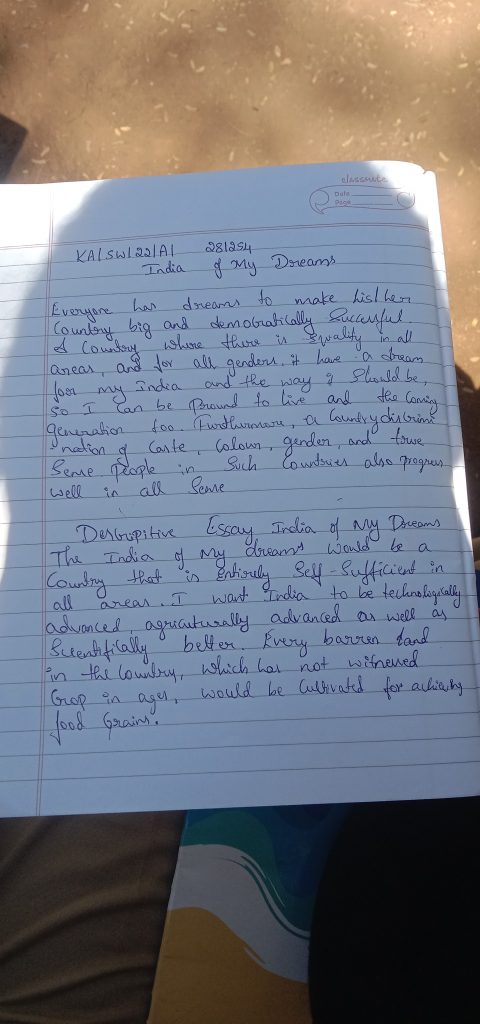 classmate
Date
Page
KA/SW/22/A/ 281254
India of My Dreams
Everyone has dreams to make his/her
Country big and demobratically Successful
A Country where there is Equality in all
areas, and for all genders, it have a dream
for my India and the way I Should be,
So I Can be Pround to live and the Coming
generation too. Furthermore, a Country discrimi
nation of Caste, Colour, gender, and true
Sense People in Such Countries also progress
well in all Sense
Desbripitive Essay India of My Dreams
The India of My dreams would be a
Country that is Entirely Self-Sufficient in
all areas. I want India to be technologically
advanced, agricuturally advanced as well as
Scientifically better. Every barren land
in the Country, which has not witnessed
Crop in ages, would be Cultivated for achieving
food Grains.